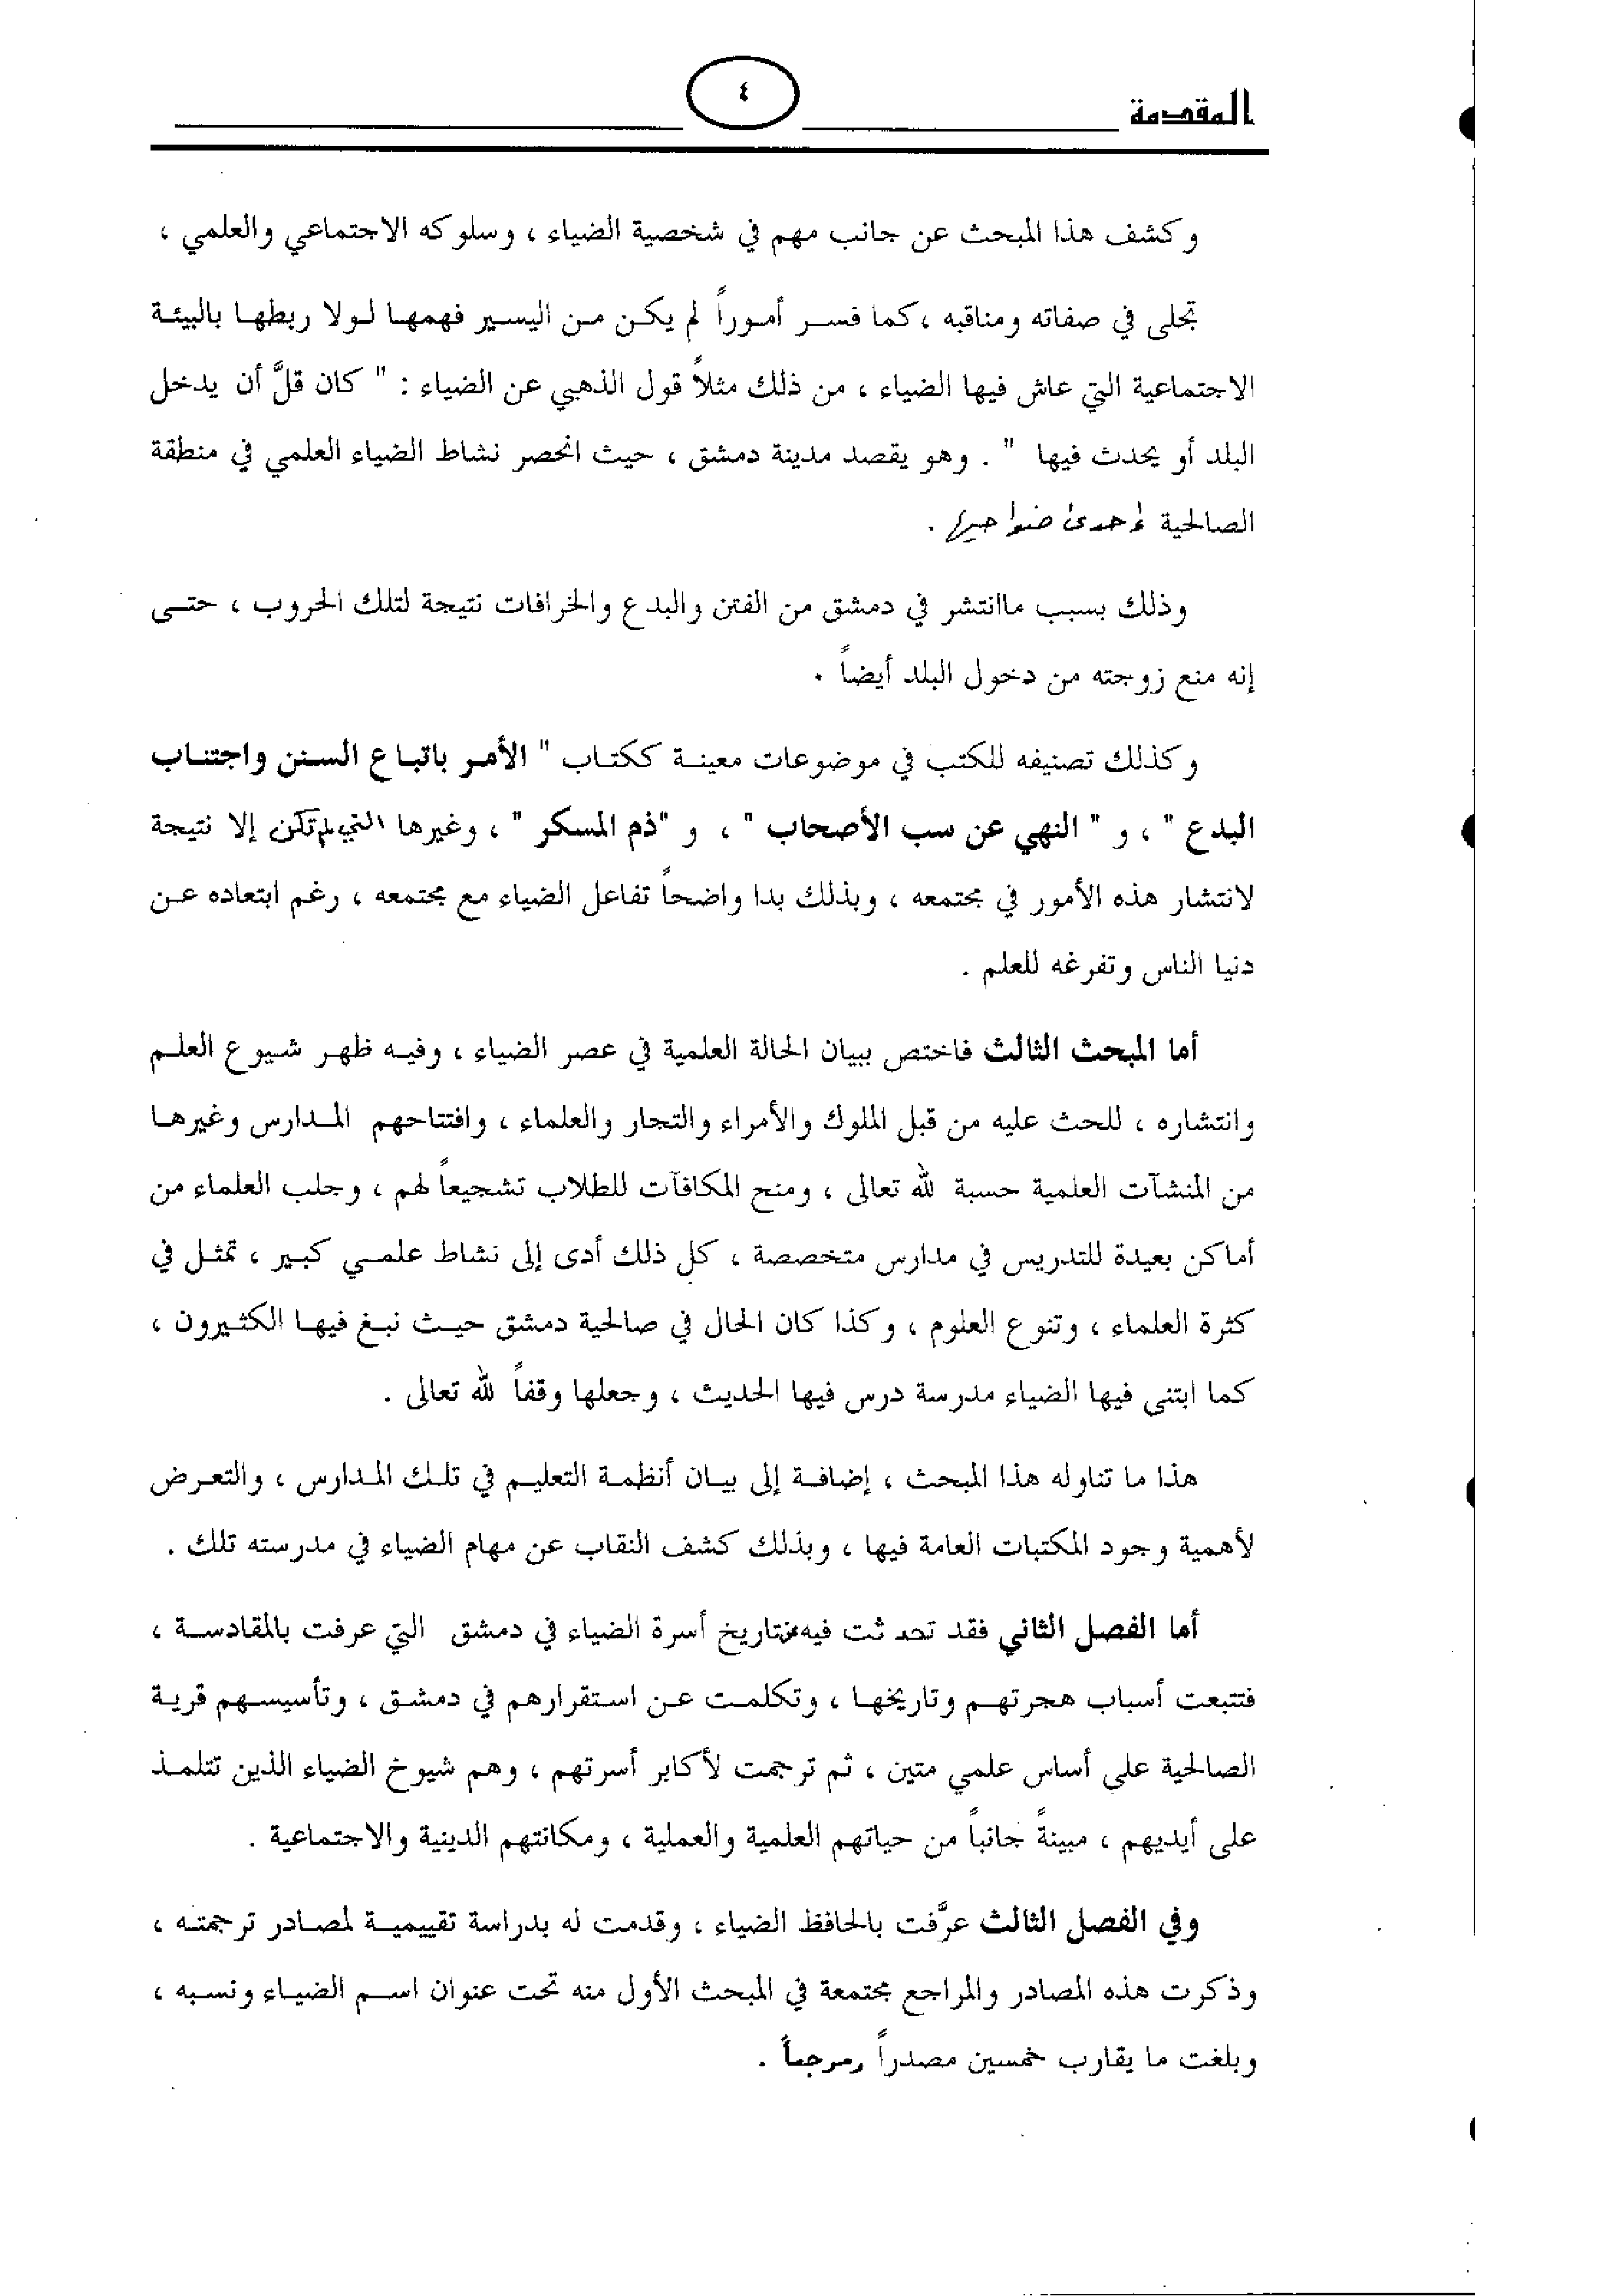 المقدمة
٤
وكشف هذا المبحث عن جانب مهم في شخصية الضياء ، وسلوكه الاجتماعي والعلمي ،
تجلى في صفاته ومناقبه ، كما فسر أموراً لم يكن من اليسير فهمها لولا ربطها بالبيئة
الاجتماعية التي عاش فيها الضياء ، من ذلك مثلاً قول الذهبي عن الضياء : " كان قلَّ أن يدخل
البلد أو يحدث فيها " . وهو يقصد مدينة دمشق ، حيث انحصر نشاط الضياء العلمي في منطقة
الصالحية احدى ضواحيها .
وذلك بسبب ماانتشر في دمشق من الفتن والبدع والخرافات نتيجة لتلك الحروب ، حتى
إنه منع زوجته من دخول البلد أيضاً .
وكذلك تصنيفه للكتب في موضوعات معينة ككتاب " الأمر باتباع السنن واجتناب
البدع " ، و " النهي عن سب الأصحاب " ، و "ذم المسكر " ، وغيرها التي لم تكن إلا نتيجة
لانتشار هذه الأمور في مجتمعه ، وبذلك بدا واضحاً تفاعل الضياء مع مجتمعه ، رغم ابتعاده عن
دنيا الناس وتفرغه للعلم .
أما المبحث الثالث فاختص ببيان الحالة العلمية في عصر الضياء ، وفيه ظهر شيوع العلم
وانتشاره ، للحث عليه من قبل الملوك والأمراء والتجار والعلماء ، وافتتاحهم المدارس وغيرها
من المنشآت العلمية حسبة لله تعالى ، ومنح المكافآت للطلاب تشجيعاً لهم ، وجلب العلماء من
أماكن بعيدة للتدريس في مدارس متخصصة ، كل ذلك أدى إلى نشاط علمي كبير ، تمثل في
كثرة العلماء ، وتنوع العلوم ، وكذا كان الحال في صالحية دمشق حيث نبغ فيها الكثيرون ،
كما ابتنى فيها الضياء مدرسة درس فيها الحديث ، وجعلها وقفاً لله تعالى .
هذا ما تناوله هذا المبحث ، إضافة إلى بيان أنظمة التعليم في تلك المدارس ، والتعرض
لأهمية وجود المكتبات العامة فيها ، وبذلك كشف النقاب عن مهام الضياء في مدرسته تلك .
أما الفصل الثاني فقد تحدثت فيه عن تاريخ أسرة الضياء في دمشق التي عرفت بالمقادسة ،
فتتبعت أسباب هجرتهم وتاريخها ، وتكلمت عن استقرارهم في دمشق ، وتأسيسهم قرية
الصالحية على أساس علمي متين ، ثم ترجمت لأكابر أسرتهم ، وهم شيوخ الضياء الذين تتلمذ
على أيديهم ، مبينةً جانباً من حياتهم العلمية والعملية ، ومكانتهم الدينية والاجتماعية .
وفي الفصل الثالث عرَّفت بالحافظ الضياء ، وقدمت له بدراسة تقييمية لمصادر ترجمته ،
وذكرت هذه المصادر والمراجع مجتمعة في المبحث الأول منه تحت عنوان اسم الضياء ونسبه ،
وبلغت ما يقارب خمسين مصدراً ومرجعاً .